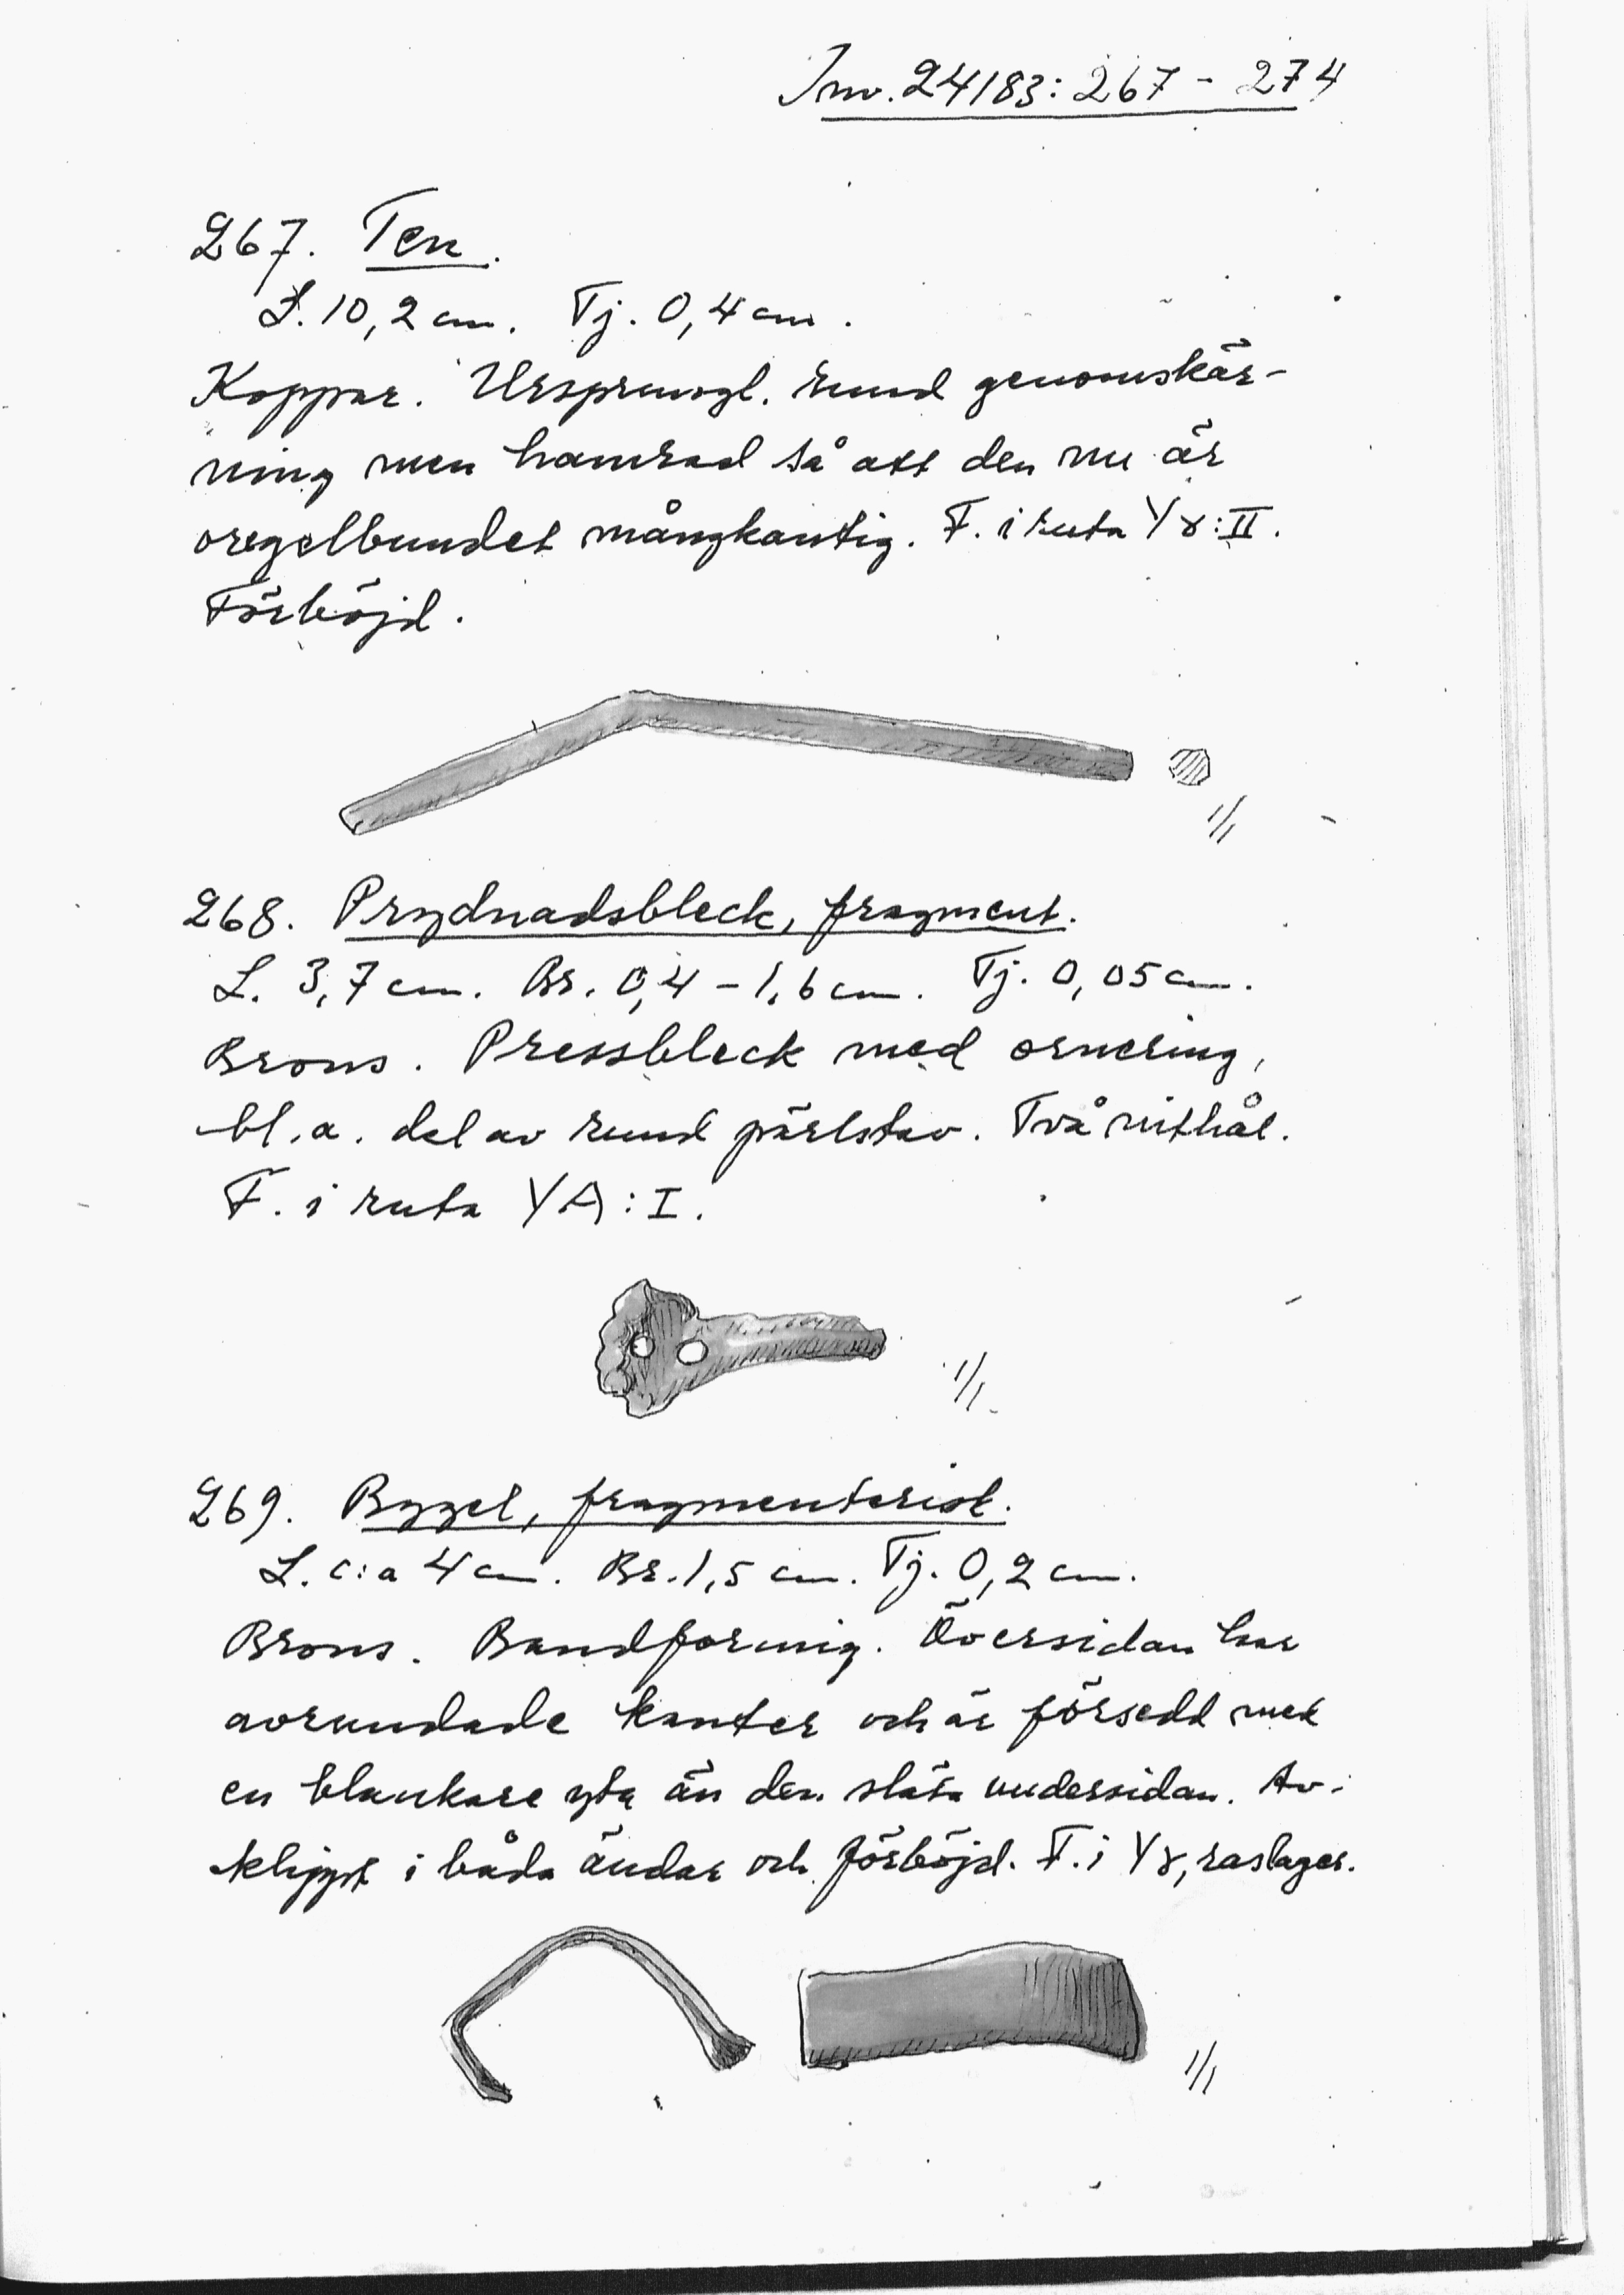 Inv. 24183: 267 - 274
267. Ten.
L. 10,2 cm. Tj. 0,4 cm.
Koppar. Ursprungl. rund genomskär-
ning men hamrad så att den nu är
oregelbundet mångkantig. F. i ruta Yɣ:II.
Förböjd.
1/1
268. Prydnadsbleck, fragment.
L. 3,7 cm. Br. 0,4 - 1,6 cm. Tj. 0,05 cm.
Brons. Pressbleck med ornering,
bl.a. del av rund pärlstav. Två nithål.
F. i ruta YA: I.
1/1
269. Bygel, fragmentarisk.
L. c:a 4 cm. Br. 1,5 cm. Tj. 0,2 cm.
Brons. Bandformig. Översidan har
avrundade kanter och är försedd med
en blankare yta än den släta undersidan. Av-
klippt i båda ändar och förböjd. F. i Yɣ, raslager.
1/1